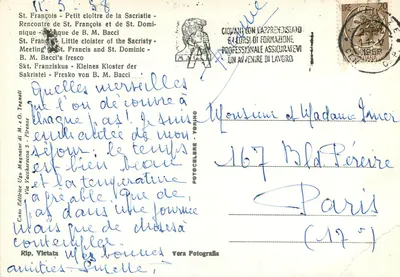 11.5.58
St. François - Petit cloître de la Sacristie -
Rencontre de St. François et de St. Domi-
nique - Fresque de B. M. Bacci
St. Francis' Little cloister of the Sacristy -
Meeting of St. Francis and St. Dominic -
B. M. Bacci's fresco
St. Franziskus - Kleines Kloster der
Sakristei - Fresko von B. M. Bacci
Quelles merveilles
que l'on découvre à
chaque pas! Je suis
enchantée de mon
séjour; le temps
est bien beau
et la température
agréable. Que de
pas dans une journée
mais que de choses à
contempler.
Mes bonnes
amitiés
Rip. Vietata
Vera Fotografia
FOTOCELERE - TORINO
GIOVANI NON L'APPRENDISTATO
E I CORSI DI FORMAZIONE
PROFESSIONALE ASSICURATEVI
UN AVVENIRE DI LAVORO
Monsieur et Madame
167 Bld Péreire
Paris
(17°)